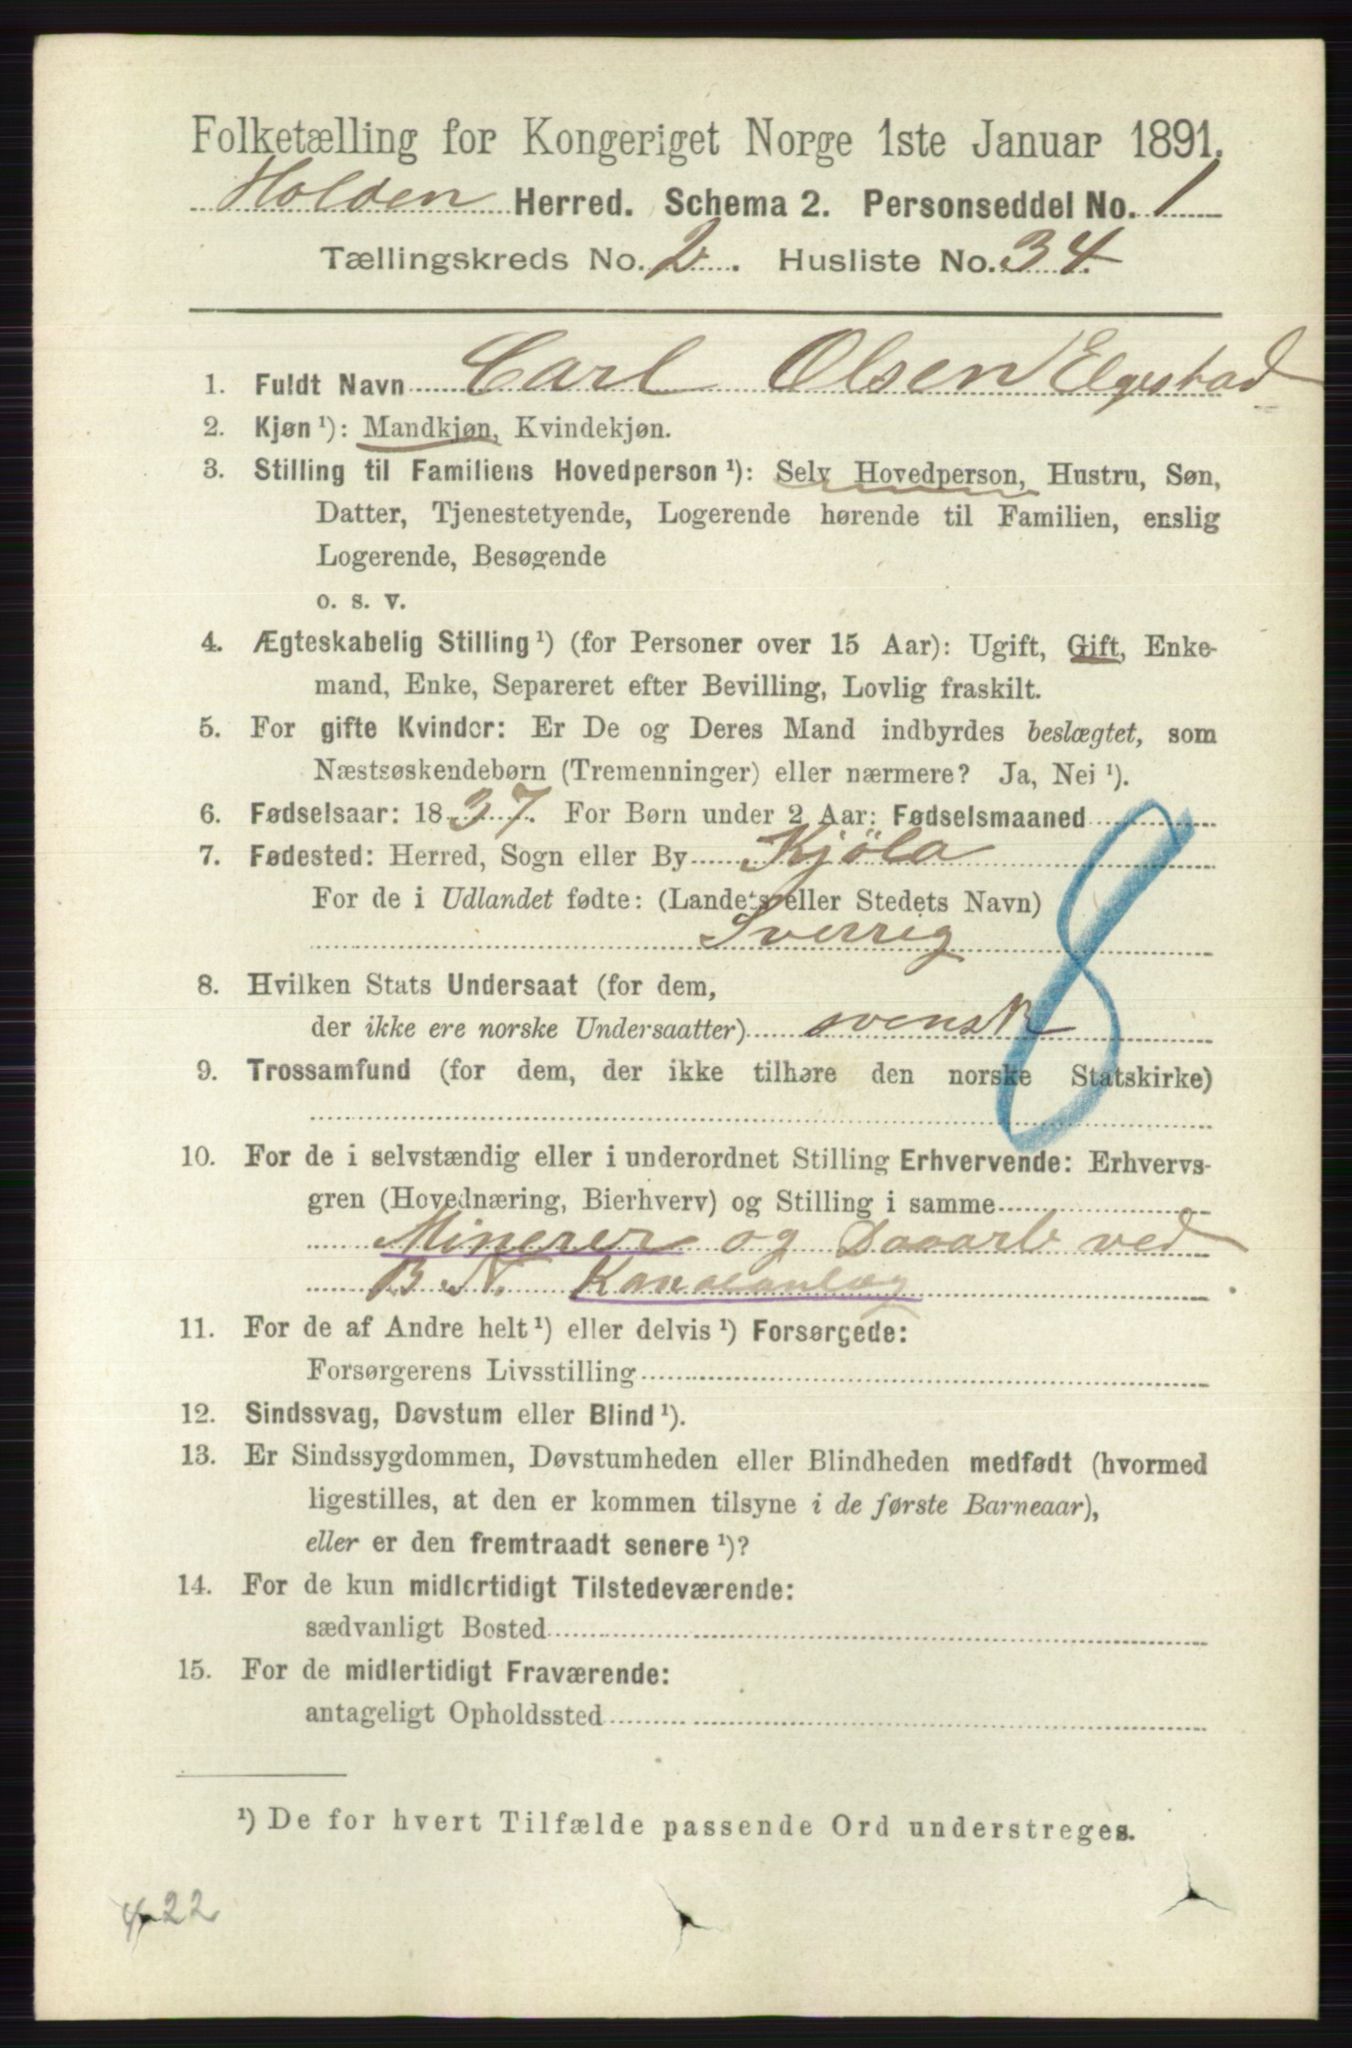 Folketælling for Kongeriget Norge 1ste Januar 1891.
Holden Herred. Schema 2. Personseddel No. 1
Tællingskreds No. 2. Husliste No. 34.
1. Fuldt Navn Carl Olsen Elgestad
2. Kjøn ¹): Mandkjøn, Kvindekjøn.
3. Stilling til Familiens Hovedperson ¹): Selv Hovedperson, Hustru, Søn,
Datter, Tjenestetyende, Logerende hørende til Familien, enslig
Logerende, Besøgende
o. s. v.
4. Ægteskabelig Stilling ¹) (for Personer over 15 Aar): Ugift, Gift, Enke-
mand, Enke, Separeret efter Bevilling, Lovlig fraskilt.
5. For gifte Kvinder: Er De og Deres Mand indbyrdes beslægtet, som
Næstsøskendebørn (Tremenninger) eller nærmere? Ja, Nei ¹).
6. Fødselsaar: 1837. For Børn under 2 Aar: Fødselsmaaned
7. Fødested: Herred, Sogn eller By Kjöla
For de i Udlandet fødte: (Landets eller Stedets Navn)
Sverrig
8. Hvilken Stats Undersaat (for dem,
der ikke ere norske Undersaatter) svensk
9. Trossamfund (for dem, der ikke tilhøre den norske Statskirke)
10. For de i selvstændig eller i underordnet Stilling Erhvervende: Erhvervs-
gren (Hovednæring, Bierhverv) og Stilling i samme
Minerer og Daarb ved
B. N. Kanalanlæg
11. For de af Andre helt ¹) eller delvis ¹) Forsørgede:
Forsørgerens Livsstilling
12. Sindssvag, Døvstum eller Blind ¹).
13. Er Sindssygdommen, Døvstumheden eller Blindheden medfødt (hvormed
ligestilles, at den er kommen tilsyne i de første Barneaar),
eller er den fremtraadt senere ¹)?
14. For de kun midlertidigt Tilstedeværende:
sædvanligt Bosted
15. For de midlertidigt Fraværende:
antageligt Opholdssted
¹) De for hvert Tilfælde passende Ord understreges.
8
22